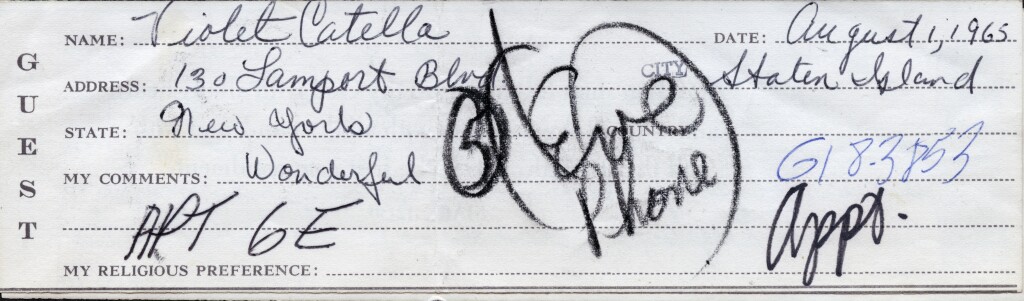 GUEST
NAME: Violet Catella DATE: August 1, 1965
ADDRESS: 130 Lamport Blvd CITY Staten Island
STATE: New York COUNTRY:
MY COMMENTS: Wonderful GI 83853
Eve
Phone
APT 6E Appt.
MY RELIGIOUS PREFERENCE: